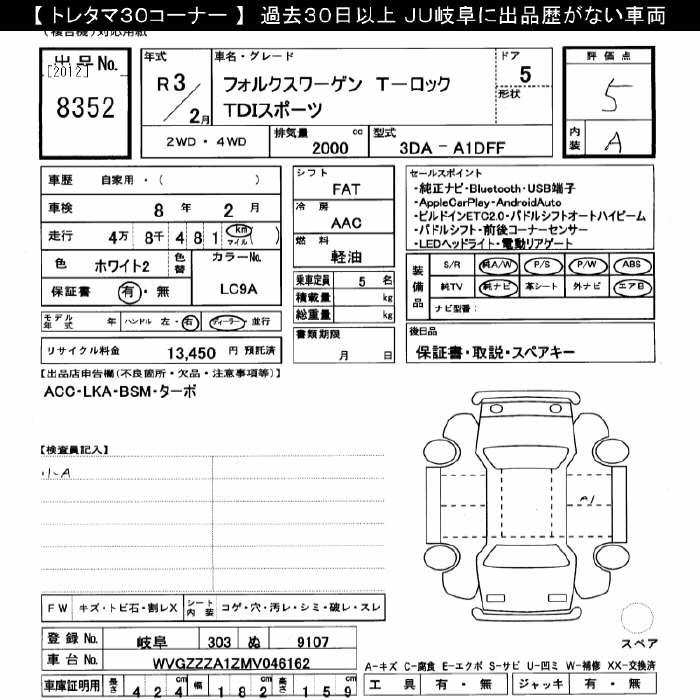 【 トレタマ30コーナー 】 過去30日以上 JU岐阜に出品歴がない車両
(複合機)対応用紙
出品No.
[2012]
8352
年式
R3/2月
車名・グレード
フォルクスワーゲン Tーロック
TDIスポーツ
ドア
5
形状
評価点
5
内装
A
2WD・4WD
排気量
2000
cc
型式
3DA - A1DFF
車歴 自家用・( )
車検 8年 2月
走行 4万 8千 4 8 1 km マイル ( )
色 ホワイト2
色替
カラーNo.
LC9A
保証書 有・無
モデル年式 年 ハンドル 左・右 ディーラー・並行
リサイクル料金 13,450 円 預託済
シフト
FAT
冷房
AAC
燃料
軽油
乗車定員 5 名
積載量 kg
総重量 kg
書類期限
月 日
セールスポイント
・純正ナビ・Bluetooth・USB端子
・AppleCarPlay・AndroidAuto
・ビルドインETC2.0・パドルシフトオートハイビーム
・パドルシフト・前後コーナーセンサー
・LEDヘッドライト・電動リアゲート
装備品
S/R 純A/W P/S P/W ABS
純TV 純ナビ 革シート 外ナビ エアB
ナビ型番:
後日品
保証書・取説・スペアキー
【出品店申告欄(不良箇所・欠品・注意事項等)】
ACC-LKA-BSM-ターボ
【検査員記入】
小A
A1
FW キズ・トビ石・割レX
シート内装 コゲ・穴・汚レ・シミ・破レ・スレ
スペア
登録No. 岐阜 303 ぬ 9107
車台No. WVGZZZA1ZMV046162
車庫証明用 長さ 4 2 4 cm 幅 1 8 2 cm 高さ 1 5 9 cm
A-キズ C-腐食 E-エクボ S-サビ U-凹ミ W-補修 XX-交換済
工具 有・無 ジャッキ 有・無